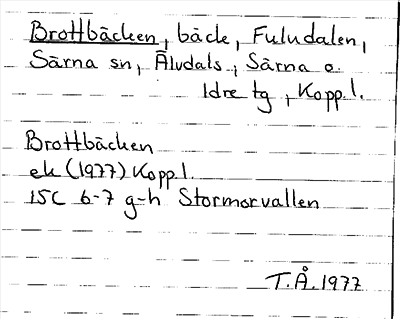 Brottbäcken, bäck, Fuludalen,
Särna sn, Älvdals, Särna o.
Idre tg, Kopp.l.
Brottbäcken
ek (1977) Kopp.l.
15C 6-7 g-h Stormorvallen
T.Å. 1977